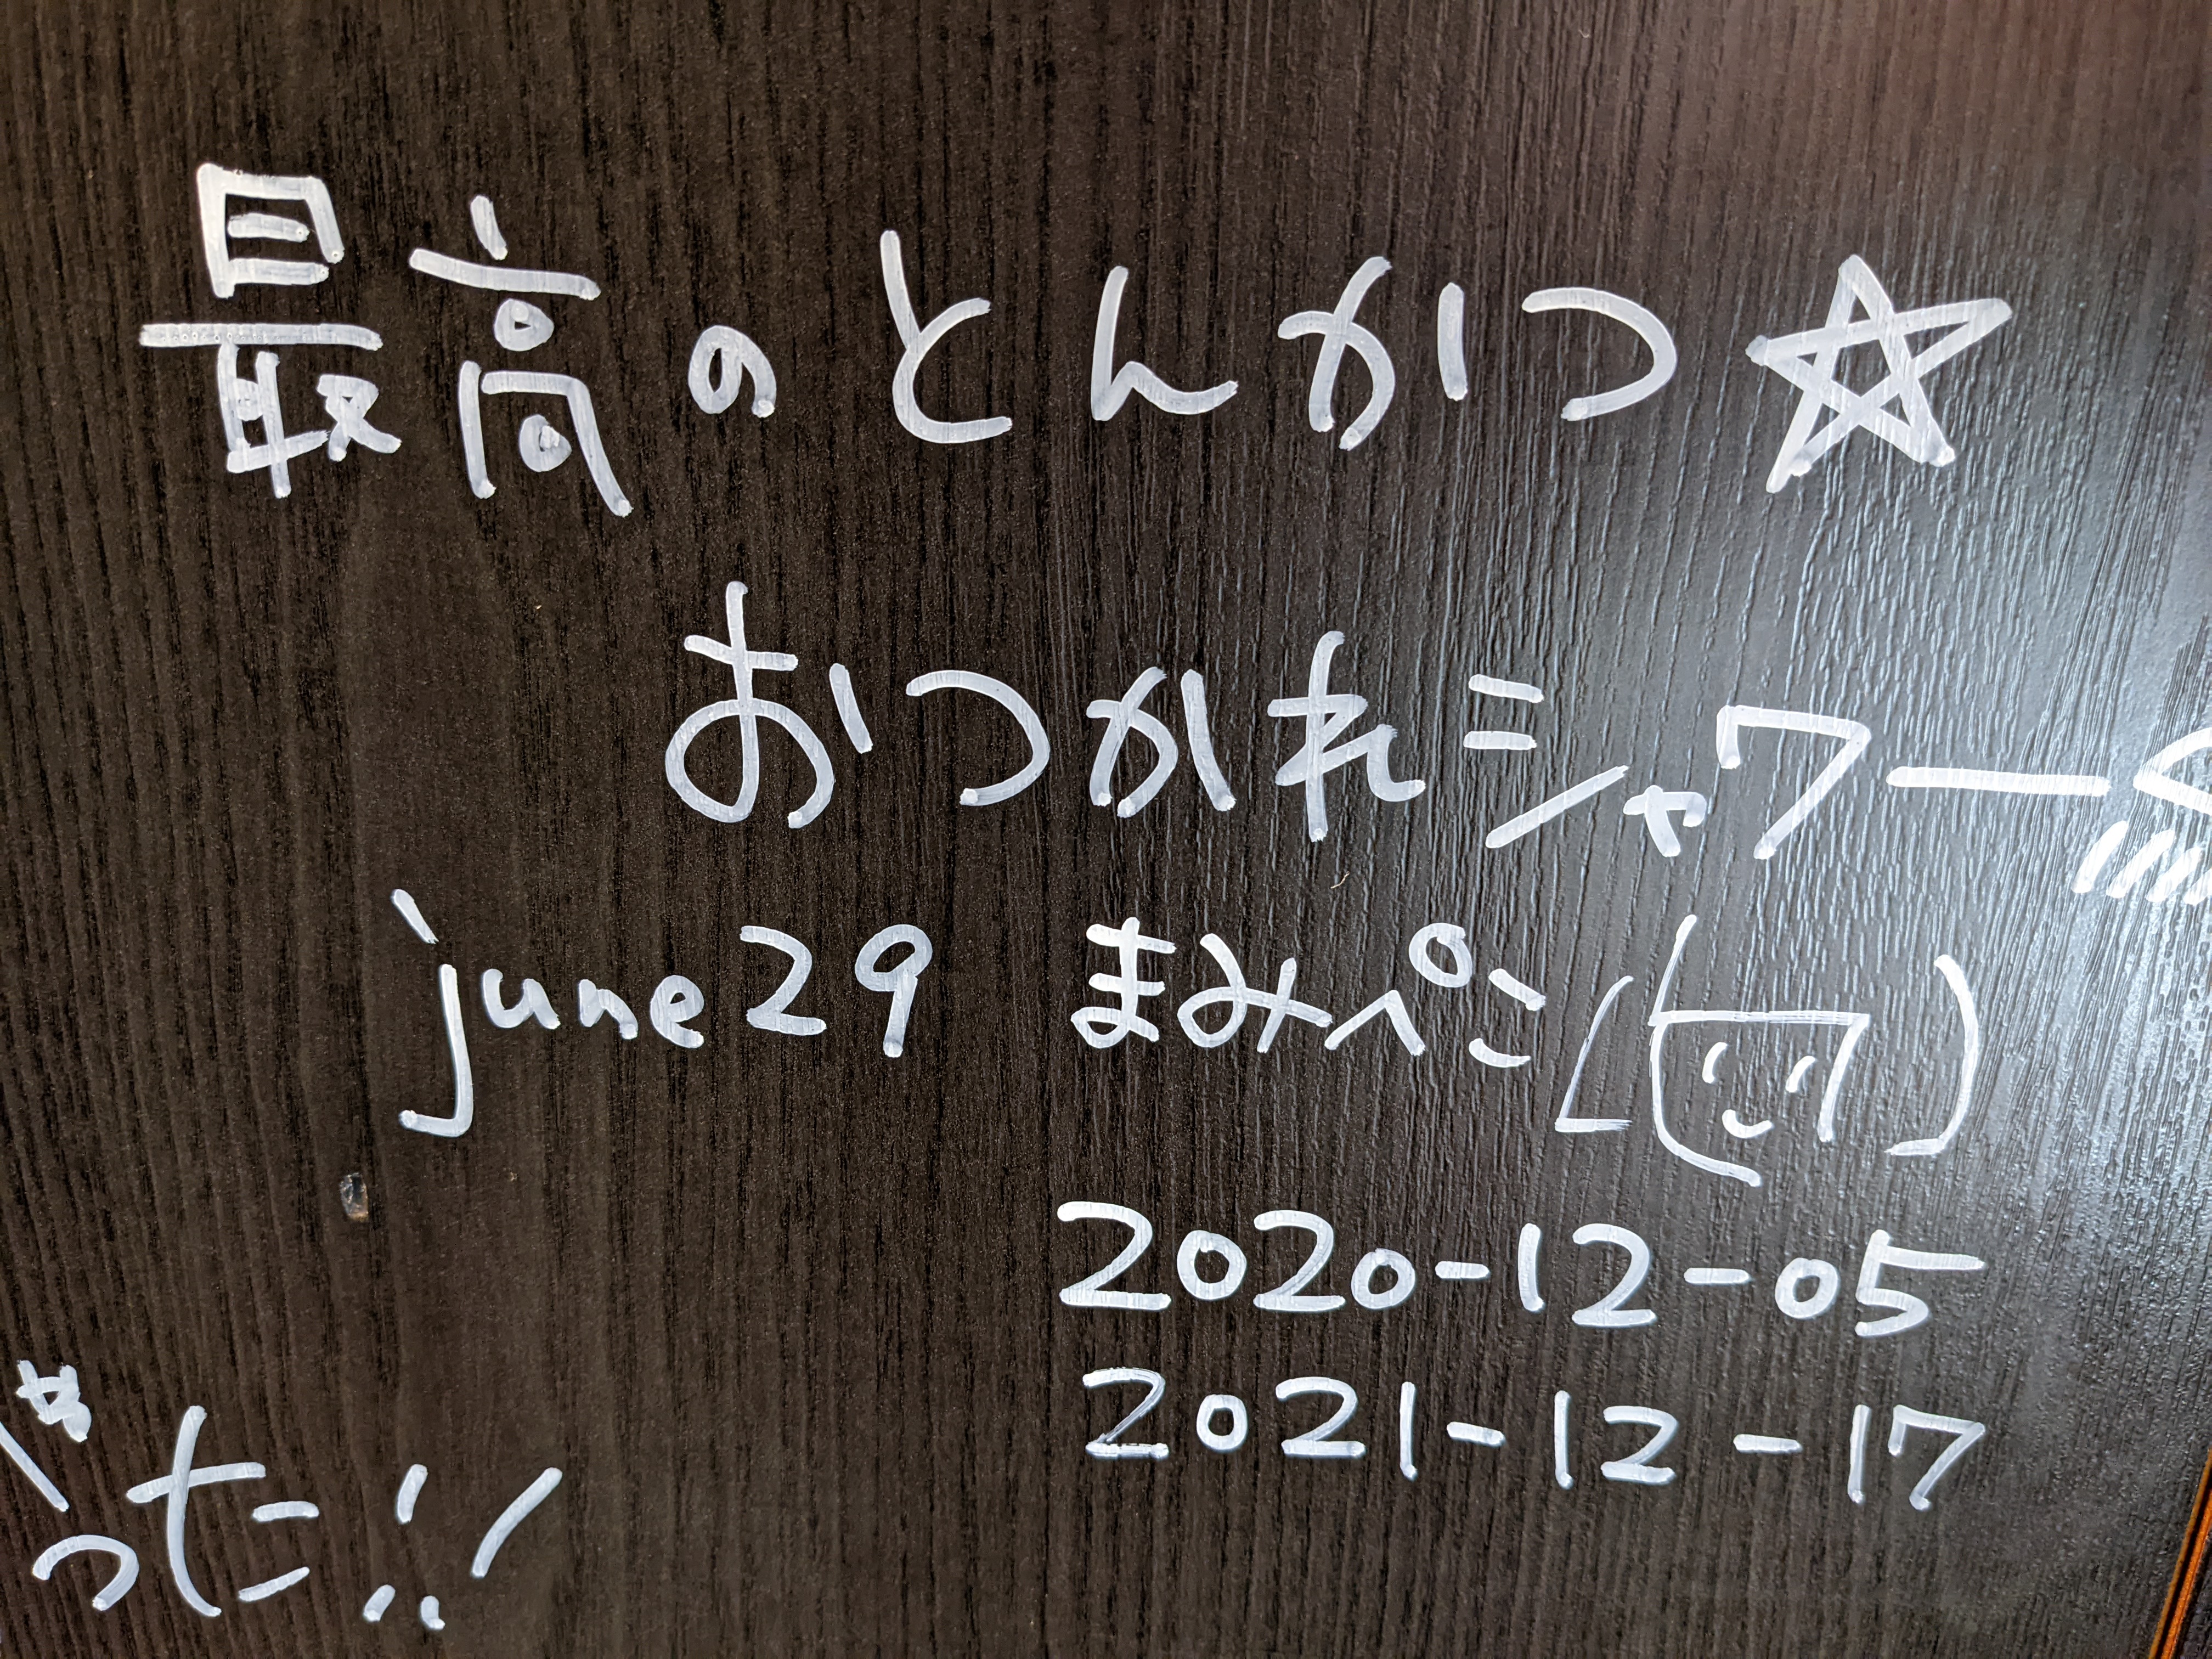 最高のとんかつ☆
おつかれシャワー
june29 まみぺこ
2020-12-05
2021-12-17
った!!